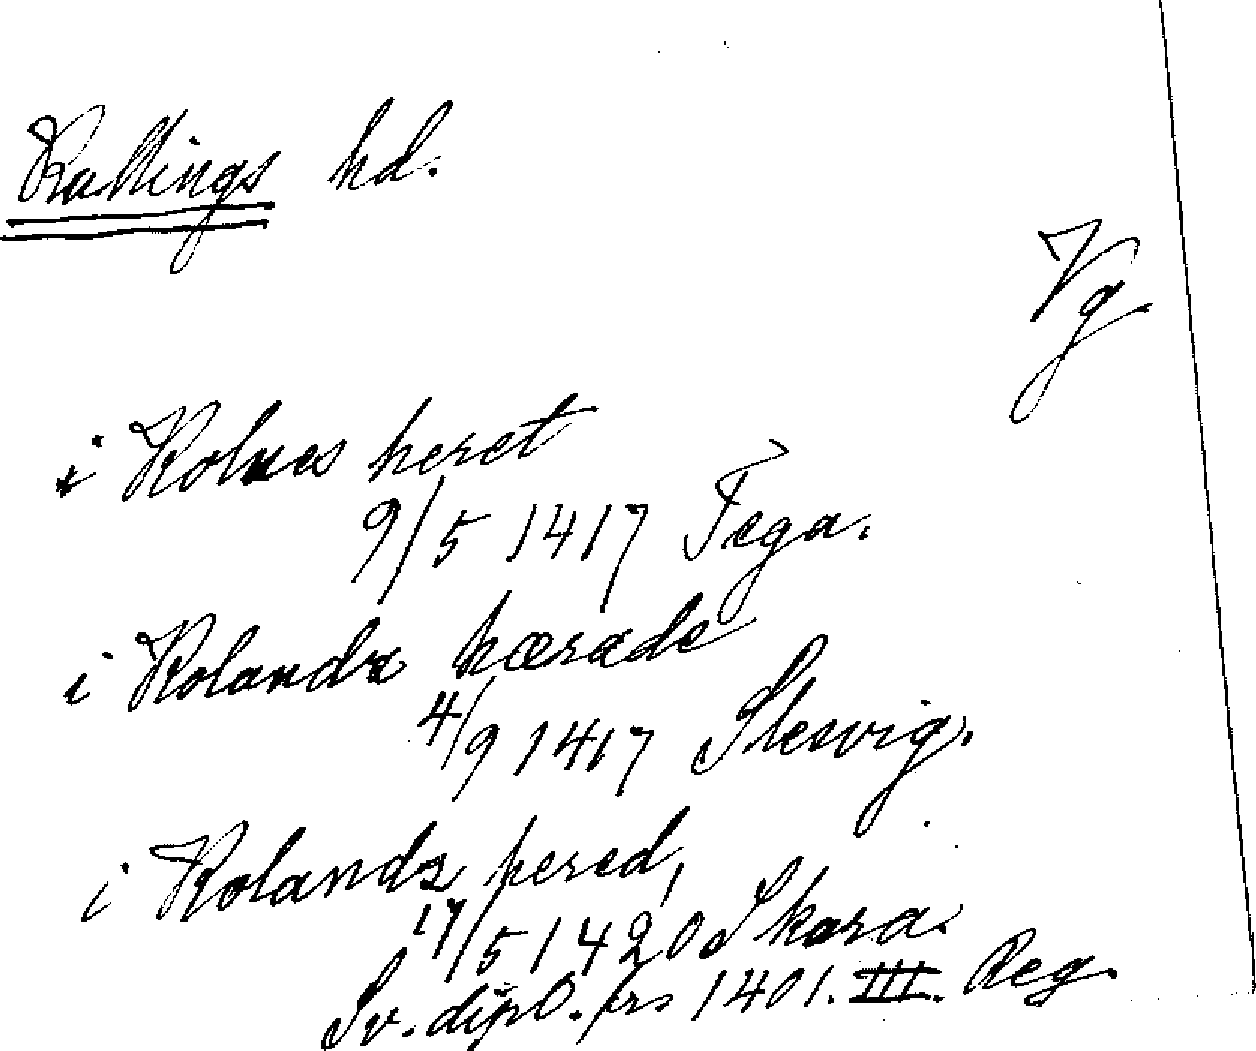 Kållings hd.
Vg
i Kolnes heret
9/5 1417 Fega.
i Kolandz hærade
4/9 1417 Slesvig.
i Kolandz hered,
17/5 1420 Skara.
Sv. dipl. frs 1401. III. Reg.